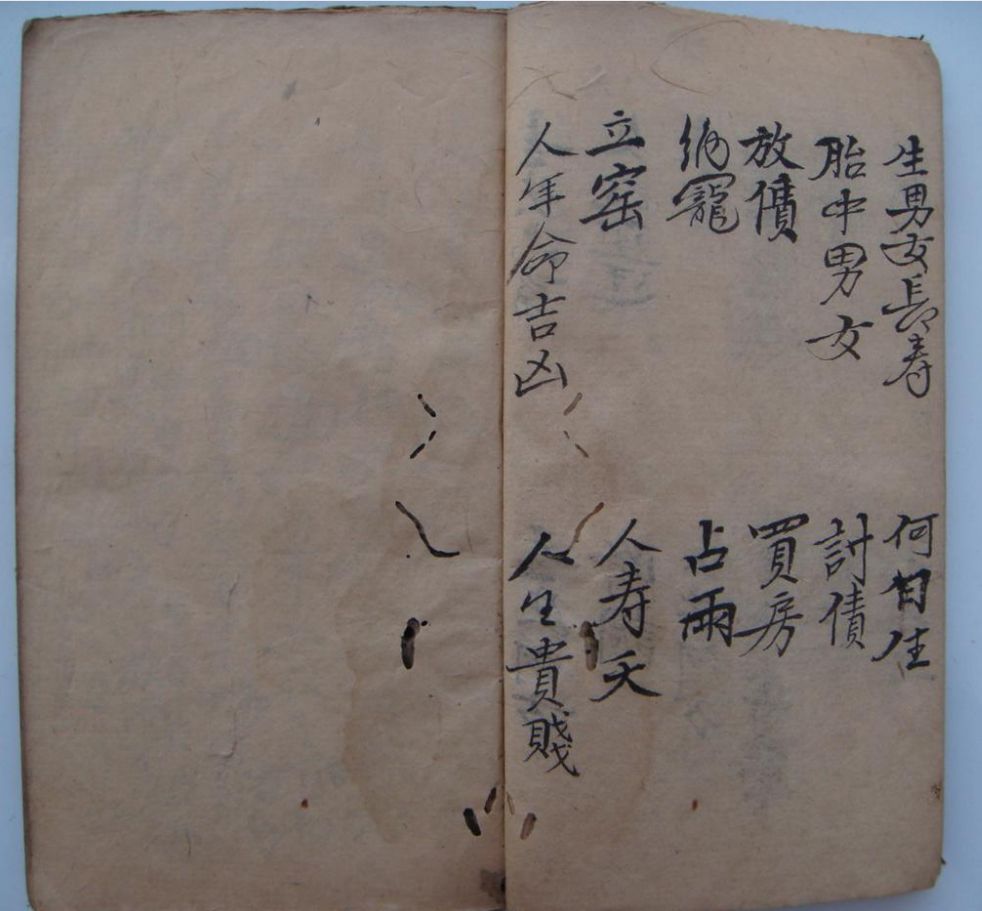 生男女長寿 何日生
胎中男女 討債
放債 買房
納寵 占雨
立窑 人寿夭
人年命吉凶 人生貴賤